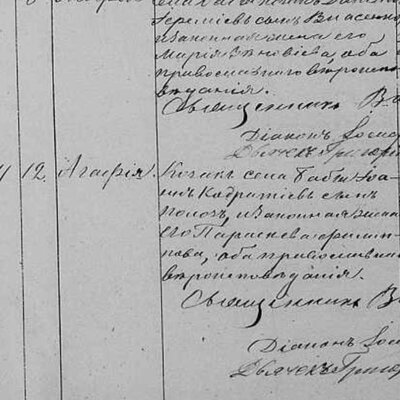 Іереміевъ сынъ Власенко
и законная жена его
Марія Зеновіева, оба
православнаго вѣроиспо-
вѣданія.
Священникъ
Діаконъ
Дьячекъ Григорій
12. Агафія. Козакъ села Іоа-
ннъ Кодратіевъ сынъ
Полоз, и законная жена
его Параскева Филип-
пова, оба православна
вѣроисповѣданія.
Священникъ
Діаконъ
Дьячекъ Григор